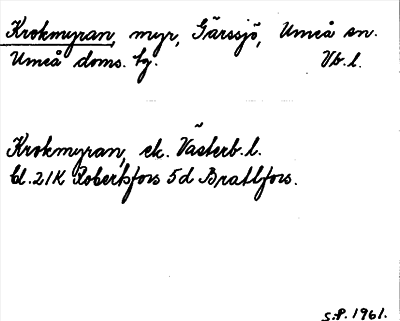 Krokmyran, myr, Gärssjö, Umeå sn.
Umeå doms. tg. Vb. l.
Krokmyran, ek. Västerb. l.
bl. 21K Robertsfors 5d Bratlfors.
S.P. 1961.